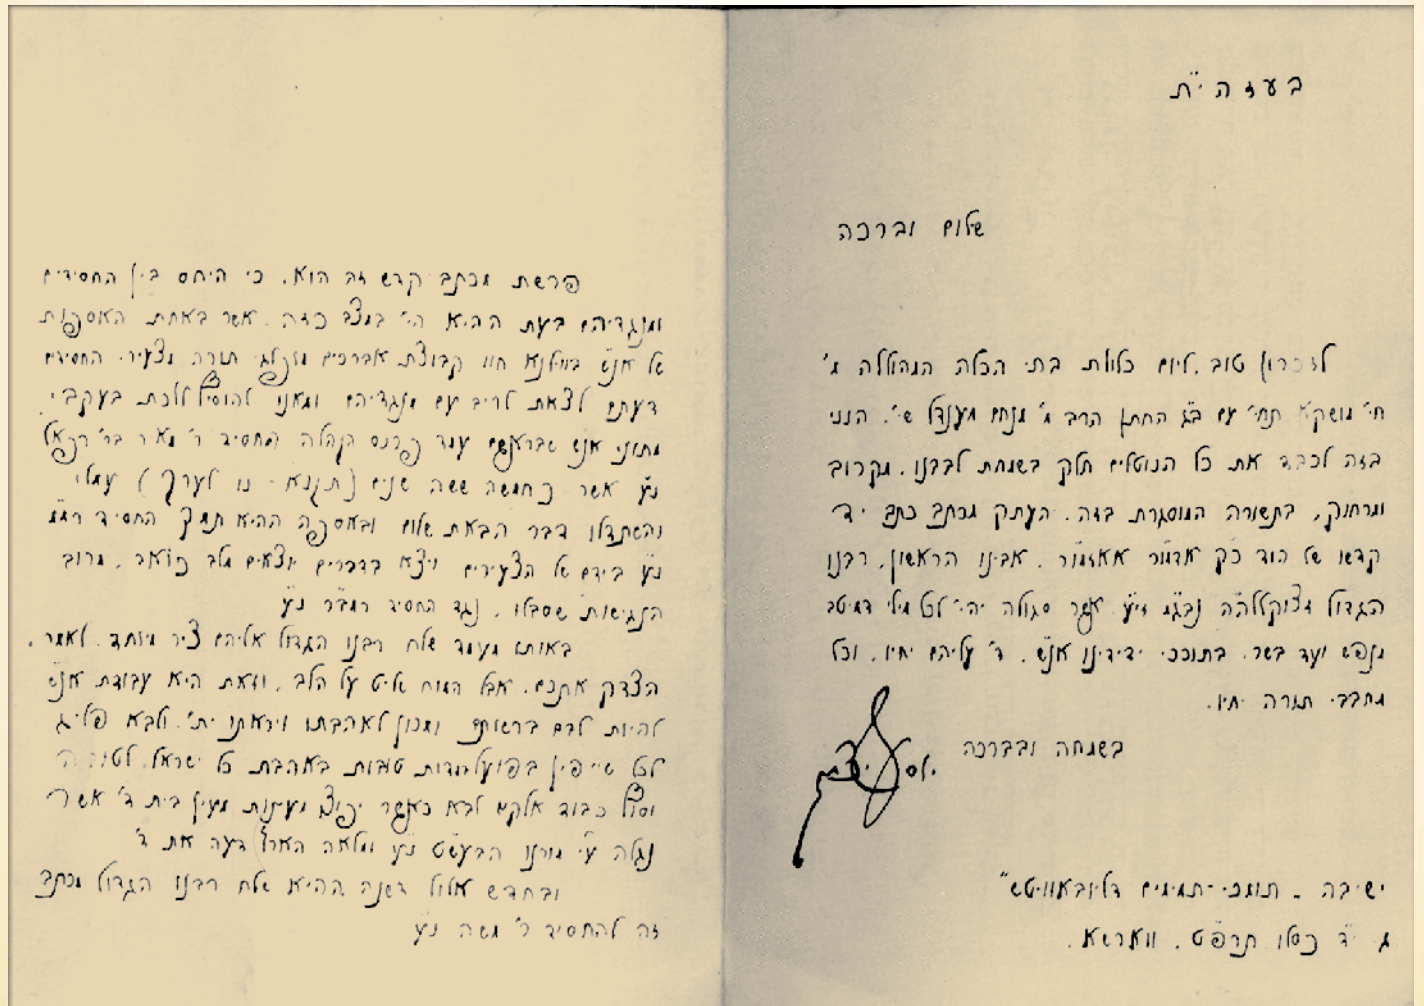 בעזהי״ת
שלום וברכה
לזכרון טוב, ליום כלולת בתי הכלה המהוללה מ׳
חי׳ מושקא תחי׳ עם ב״ג החתן הרב מ׳ מנחם מענדל שי׳. הנני
בזה לכבד את כל הנוטלים חלק בשמחת לבבנו, מקרוב
ומרחוק, בתשורה המוסגרת בזה. העתק מכתב כתב יד
קדשו של הוד כ״ק אדמו״ר אאזמו״ר. אבינו הראשון, רבנו
הגדול זצוקללה״ה נבג״מ זי״ע אשר סגולה יהי׳ לכל מילי דמיטב
מנפש ועד בשר. בתוככי ידידינו אנ״ש. ד׳ עליהם יחיו. וכל
מחבבי תורה יחיו.
בשמחה ובברכה
יוסף יצחק
ישיבה - תומכי-תמימים דליובאוויטש״
ג׳ י״ד כסלו תרפ״ט. ווארשא.
פרשת מכתב קדש זה הוא. כי היחס בין החסידים
ומנגדיהם בעת ההיא הי׳ במצב כזה. אשר באחת האספות
של אנ״ש בווילנא חוו קבוצת אברכים מופלגי תורה מצעירי החסידים
דעתם לצאת לריב עם מנגדיהם ומאנו להוסיף ללכת בעקבי
מתוני אנ״ש שבראשם עמד פרנס הקהלה החסיד ר׳ מאיר בר׳ רפאל
נ״ע אשר כחמשה ששה שנים (תקנ״א - נו לערך) עמלו
והשתדלו דבר הבאת שלום ובאספה ההיא תמך החסיד
נ״ע בידם של הצעירים ויצא בדברים יוצאים מלב כואב. מרוב
הנגישות שסבלו. נגד החסיד רמב״ר נ״ע
באותו מעמד שלח רבנו הגדול אליהם ציר מיוחד. לאמר.
הצדק אתכם. אבל המוח שליט על הלב. וזאת היא עבודת אנ״ש
להיות לבם ברשותם ומכון לאהבתו ויראתו ית׳. ולבא
לכל בפועל מדות טובות באהבת כל ישראל. לטובה
וסוף כבוד אלקים לבא כאשר יפוצו מעינות מעין בית ד׳ אשר
נגלה ע״י מורנו הבעש״ט נ״ע ומלאה הארץ דעה את ד׳
ובחדש אלול דשנה ההיא שלח רבנו הגדול מכתב
זה להחסיד ר׳ משה נ״ע